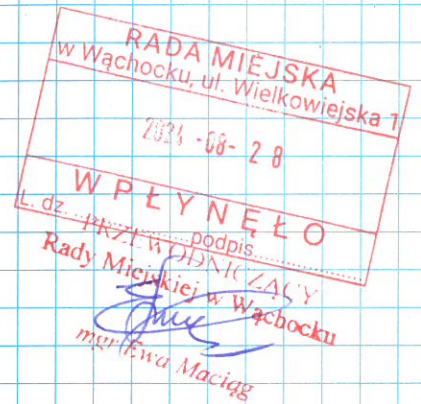 RADA MIEJSKA
w Wąchocku, ul. Wielkowiejska 1
2024 -08- 2 8
WPŁYNĘŁO
L. dz. ............ podpis ............
PRZEWODNICZĄCY
Rady Miejskiej w Wąchocku
mgr Ewa Maciąg